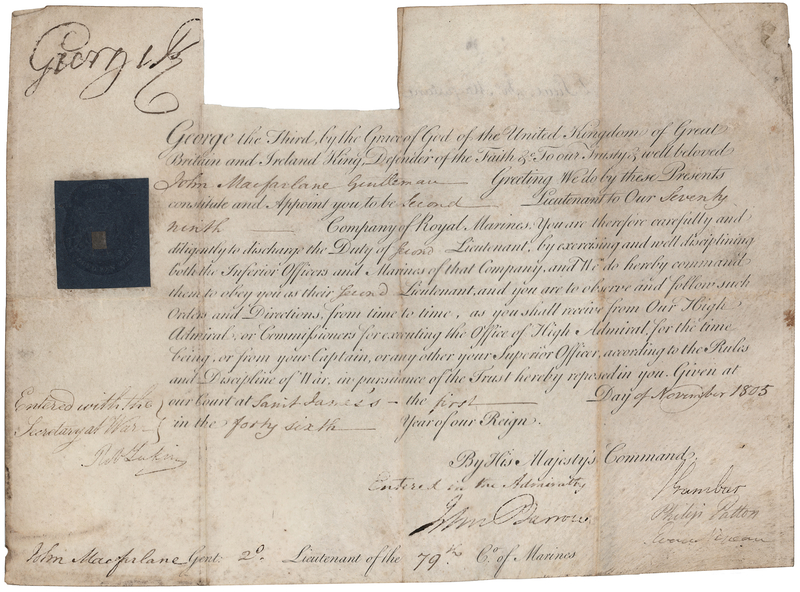 George R
George the Third, by the Grace of God of the United Kingdom of Great
Britain and Ireland King, Defender of the Faith &c To our Trusty & well beloved
John Macfarlane Gentleman Greeting We do by these Presents
constitute and Appoint you to be Second Lieutenant to Our Seventy
ninth Company of Royal Marines. You are therefore carefully and
diligently to discharge the Duty of Second Lieutenant, by exercising and well disciplining
both the Inferior Officers and Marines of that Company, and We do hereby command
them to obey you as their Second Lieutenant, and you are to observe and follow such
Orders and Directions, from time to time, as you shall receive from Our High
Admiral, or Commissioners for executing the Office of High Admiral, for the time
being, or from your Captain, or any other your Superior Officer, according to the Rules
and Discipline of War, in pursuance of the Trust hereby reposed in you. Given at
our Court at Saint James's - the first Day of November 1805
in the forty sixth Year of our Reign.
Entered with the
Secretary at War
By His Majesty's Command,
Entered in the Admiralty
John Barrow
Gambier
Philip Patton
John Macfarlane Gent. 2d. Lieutenant of the 79th Co. of Marines